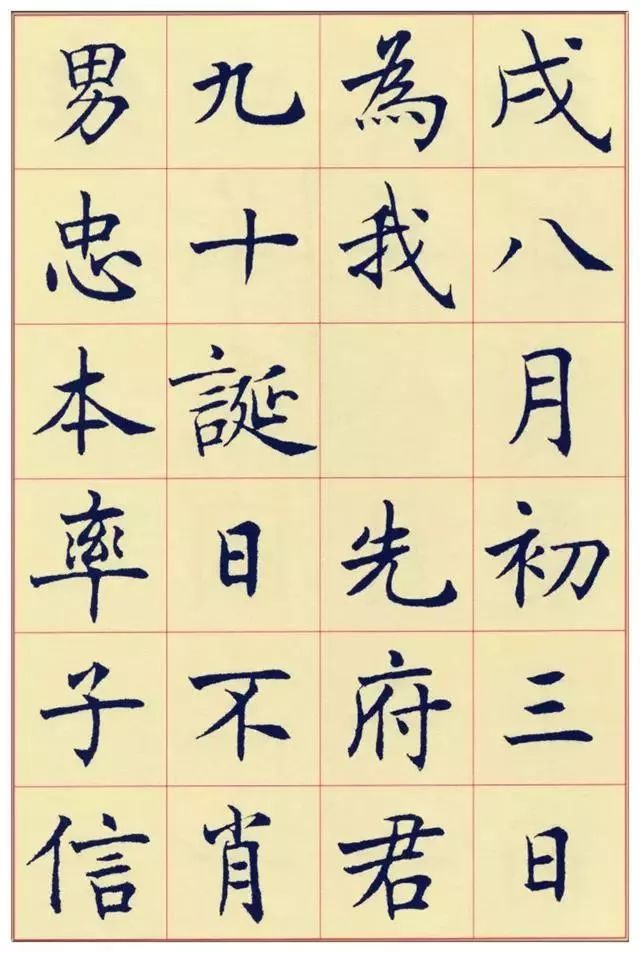 戌八月初三日
為我 先府君
九十誕日不肖
男忠本率子信